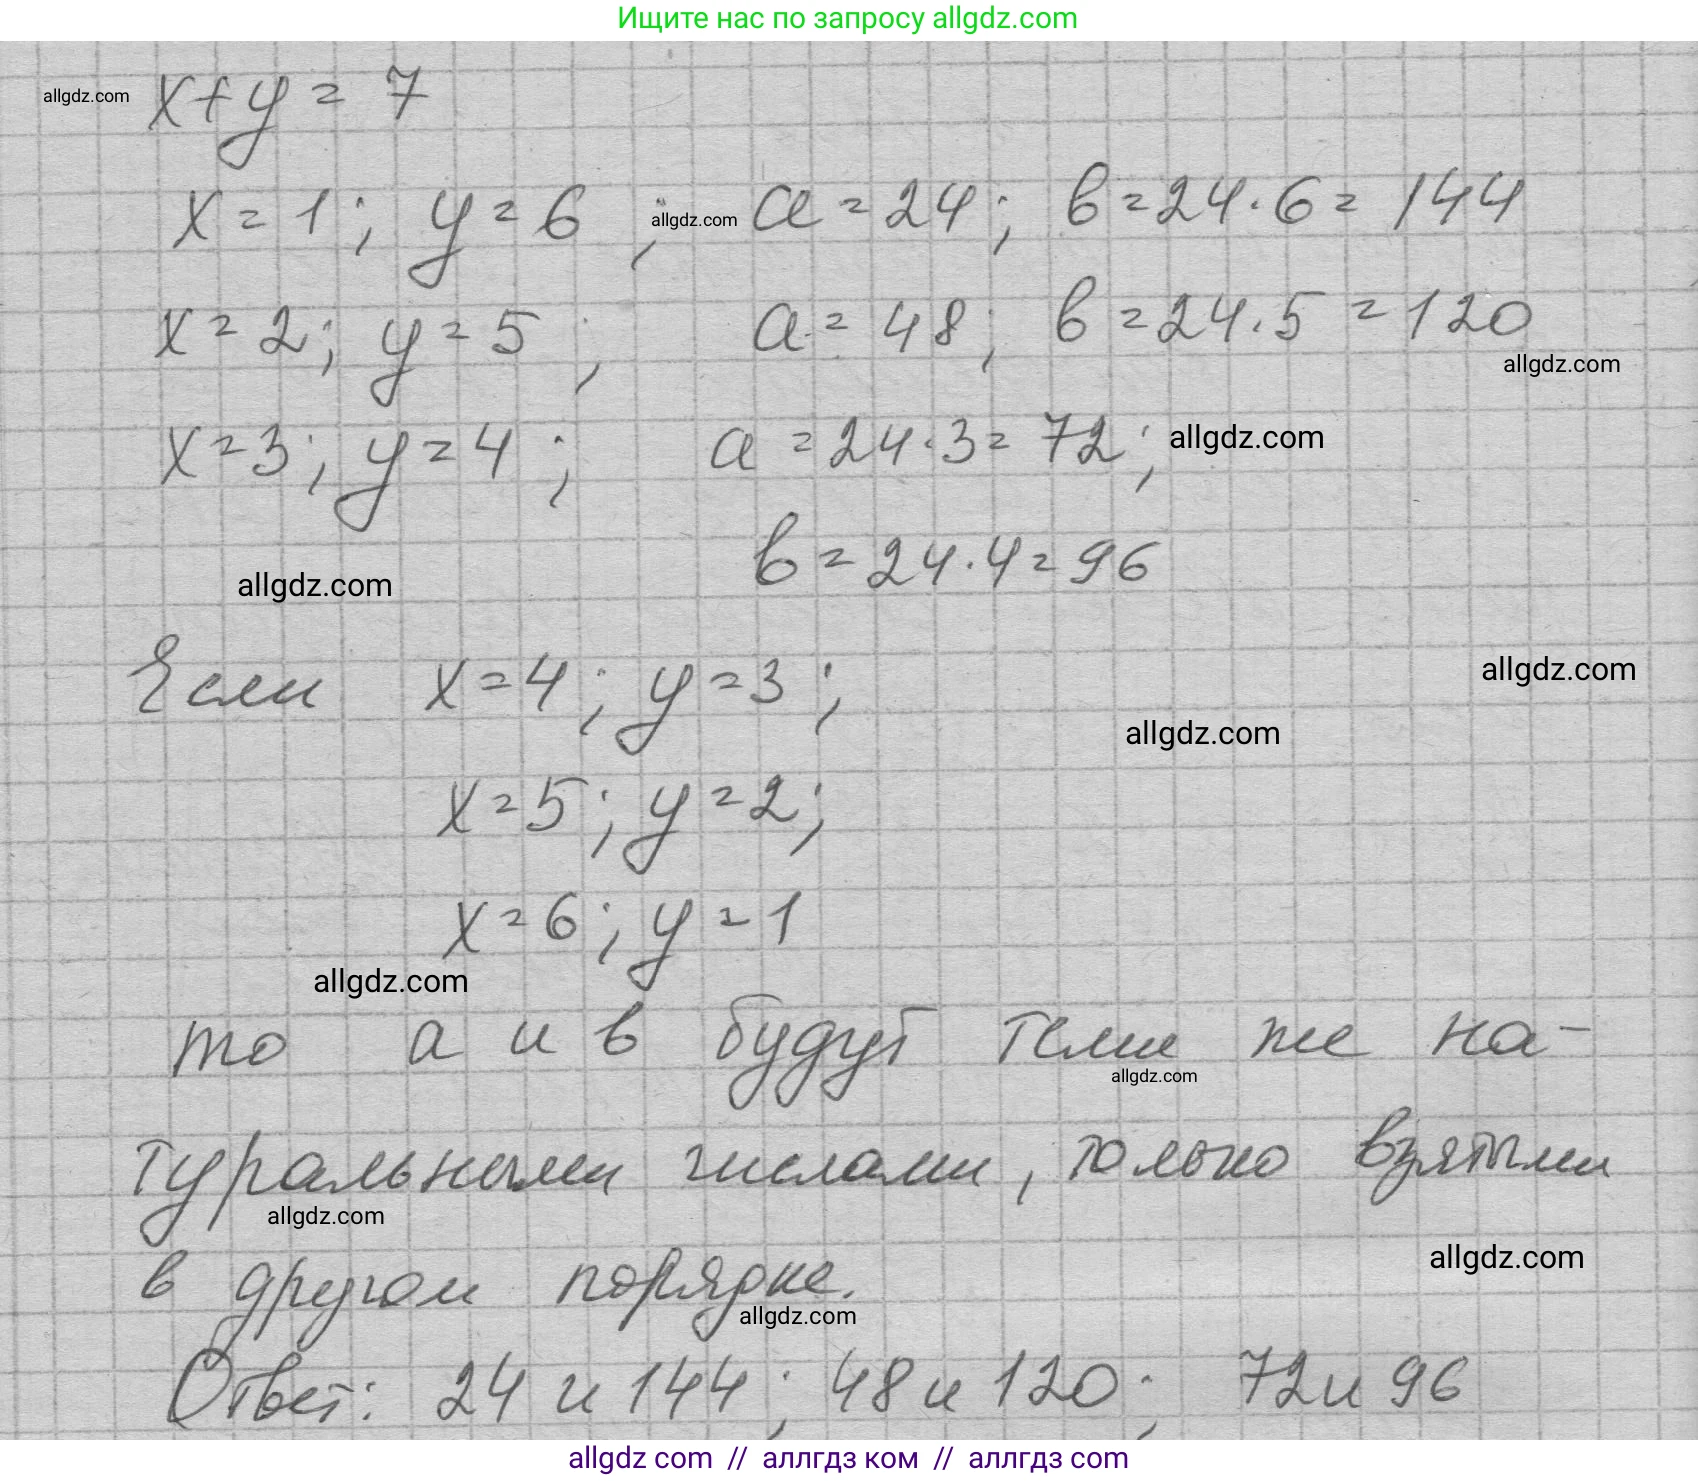 Ищите нас по запросу allgdz.com
allgdz.com x+y=7
x=1; y=6; allgdz.com a=24; в=24·6=144
x=2; y=5; a=48; в=24·5=120
allgdz.com
x=3; y=4; a=24·3=72; allgdz.com
в=24·4=96
allgdz.com
Если x=4; y=3; allgdz.com
allgdz.com
x=5; y=2;
x=6; y=1
allgdz.com
то а и в будут теми же на-
allgdz.com
туральными числами, только взятыми
allgdz.com
в другом порядке. allgdz.com
allgdz.com
Ответ: 24 и 144; 48 и 120; 72 и 96
allgdz com // аллгдз ком // аллгдз com